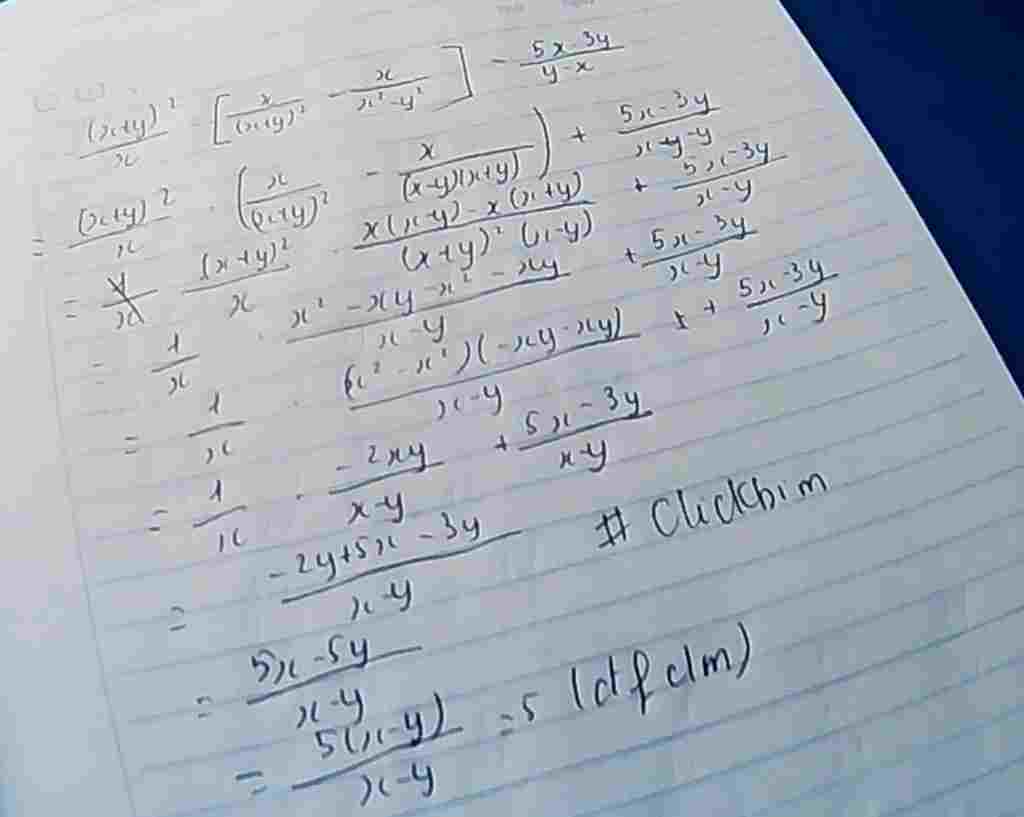 (x+y)²/x · [x/(x+y)² - x/(x²-y²)] - (5x-3y)/(y-x)
= (x+y)²/x · (x/(x+y)² - x/((x-y)(x+y))) + (5x-3y)/(x-y-y)
= (x+y)²/x · (x(x-y)-x(x+y))/((x+y)²(x-y)) + (5x-3y)/(x-y)
= 1/x · (x²-xy-x²-xy)/(x-y) + (5x-3y)/(x-y)
= 1/x · (x²-x²)(-xy-xy)/(x-y) + (5x-3y)/(x-y)
= 1/x · (-2xy)/(x-y) + (5x-3y)/(x-y)
= (-2y+5x-3y)/(x-y) # Clickbim
= (5x-5y)/(x-y)
= 5(x-y)/(x-y) = 5 (đfclm)